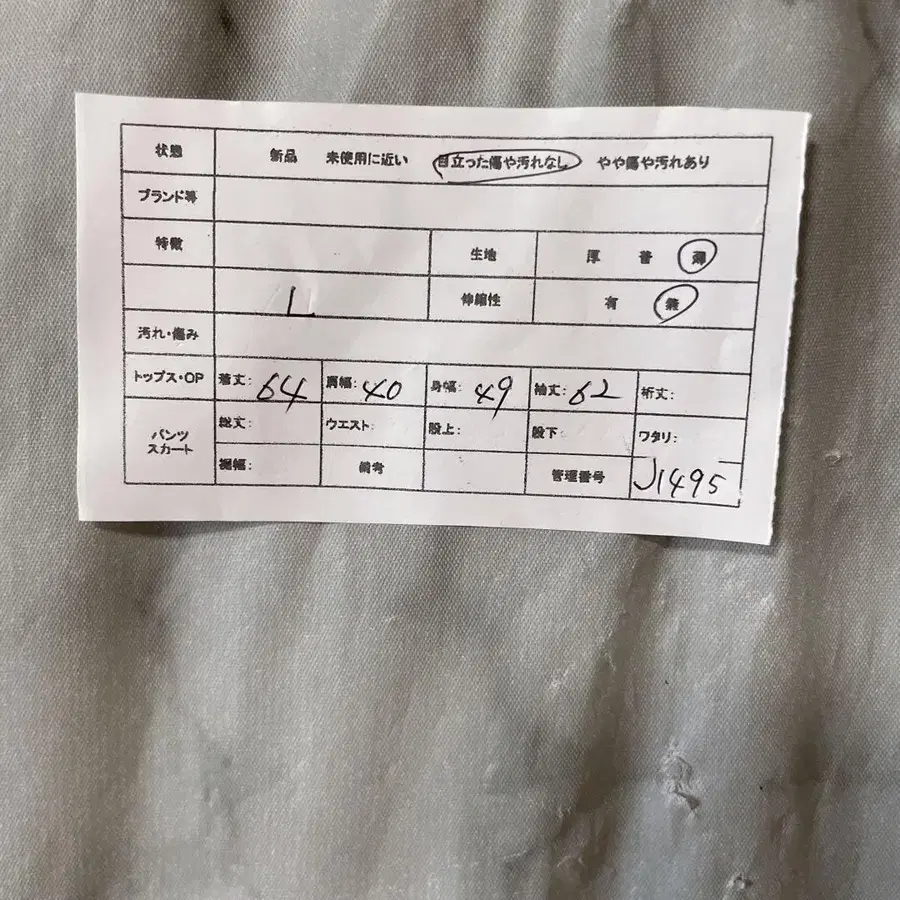 状態 新品 未使用に近い 目立った傷や汚れなし やや傷や汚れあり
ブランド等
特徴 生地 厚 普 薄
L 伸縮性 有 無
汚れ・傷み
トップス・OP 着丈: 64 肩幅: 40 身幅: 49 袖丈: 62 裄丈:
パンツ スカート 総丈: ウエスト: 股上: 股下: ワタリ:
裾幅: 備考 管理番号 J1495